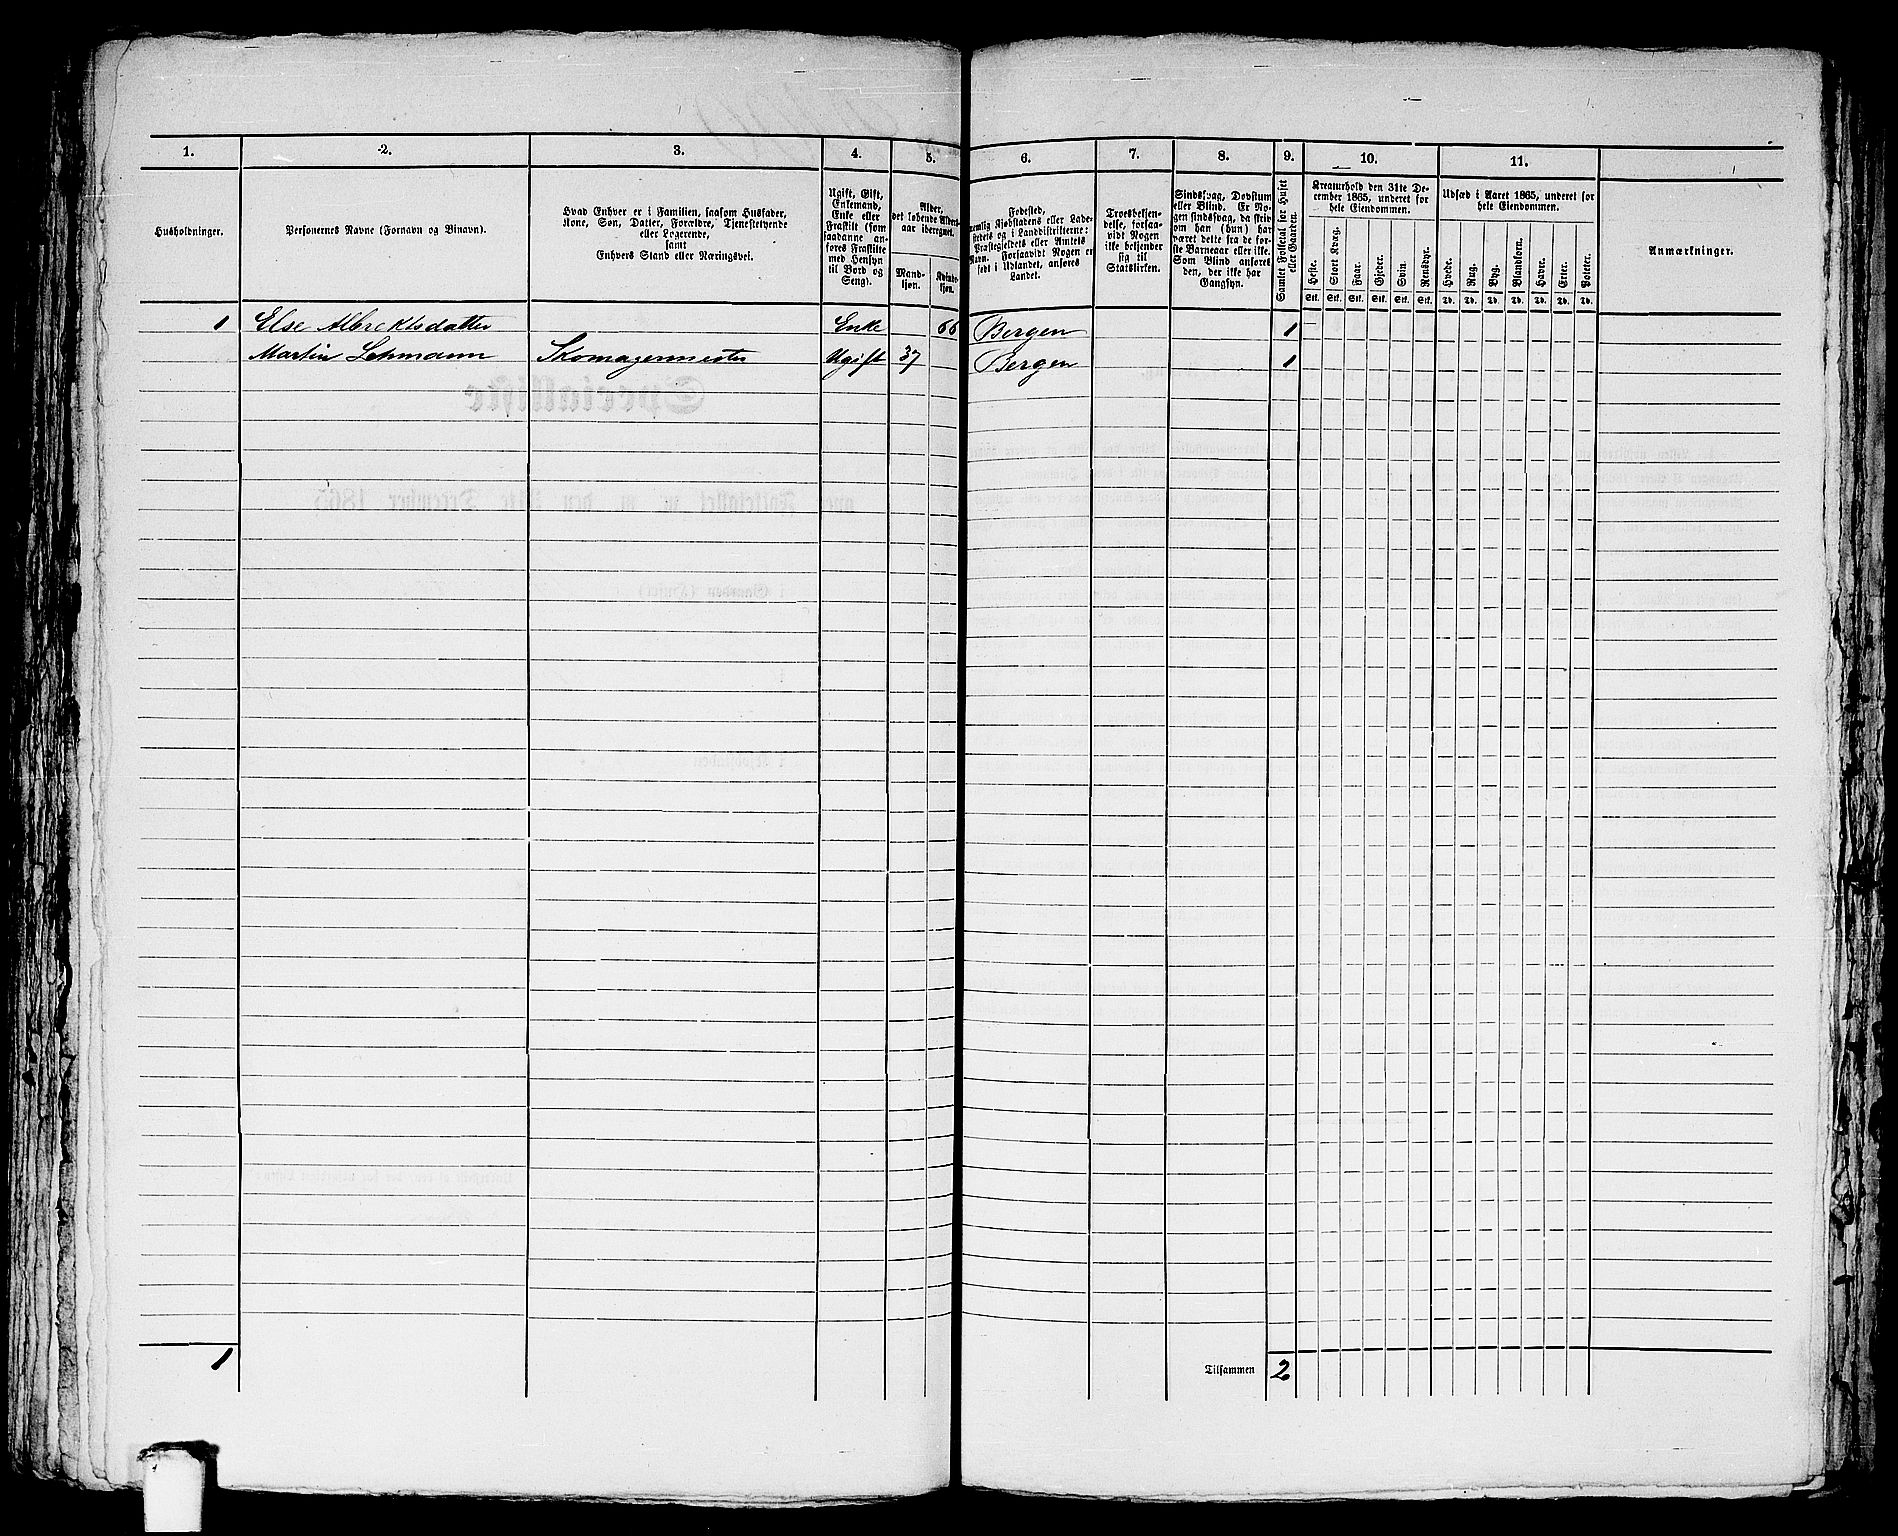 1. 2. 3. 4. 5. 6. 7. 8. 9. 10. 11.
Husholdninger.
Personernes Navne (Fornavn og Tilnavn).
Hvad Enhver er i Familien, saasom Husfader,
Kone, Søn, Datter, Forældre, Tjenestetyende
eller Logerende,
samt
Enhvers Stand eller Næringsvei.
Ugift, Gift,
Enkemand,
Enke eller
Fraskilt (som
saadanne an-
føres Fraskilte
med Hensyn
til Bord og
Seng).
Alder,
det løbende Alders-
aar iberegnet.
Mand-
kjøn.
Kvinde-
kjøn.
Fødested,
nemlig Kjøbstadens eller Lade-
stedets og i Landdistrikterne:
Præstegjeldets eller Amtets
Navn. Forsaavidt Nogen er
født i Udlandet, anføres
Landet.
Troesbekjen-
delse, forsaa-
vidt Nogen
ikke bekjender
sig til
Statskirken.
Sindssvag, Døvstum
eller Blind. Er No-
gen sindssvag, da skriv
om han (hun) har
været dette fra de før-
ste Barneaar eller ikke.
Som Blind anføres
den, der ikke har
Gangsyn.
Samlet Folketal for Huset
eller Gaarden.
Kreaturhold den 31te De-
cember 1865, underet for
hele Eiendommen.
Heste. Stort Kvæg. Faar. Gjeder. Svin. Rensdyr.
Stk. Stk. Stk. Stk. Stk. Stk.
Udsæd i Aaret 1865, underet for
hele Eiendommen.
Hvede. Rug. Byg. Blandkorn. Havre. Erter. Poteter.
Td. Td. Td. Td. Td. Td. Td.
Anmærkninger.
1 Else Albrektsdatter Enke 66 Bergen 1
Martin Lehmann Skomagermester Ugift 37 Bergen 1
1 Tilsammen 2